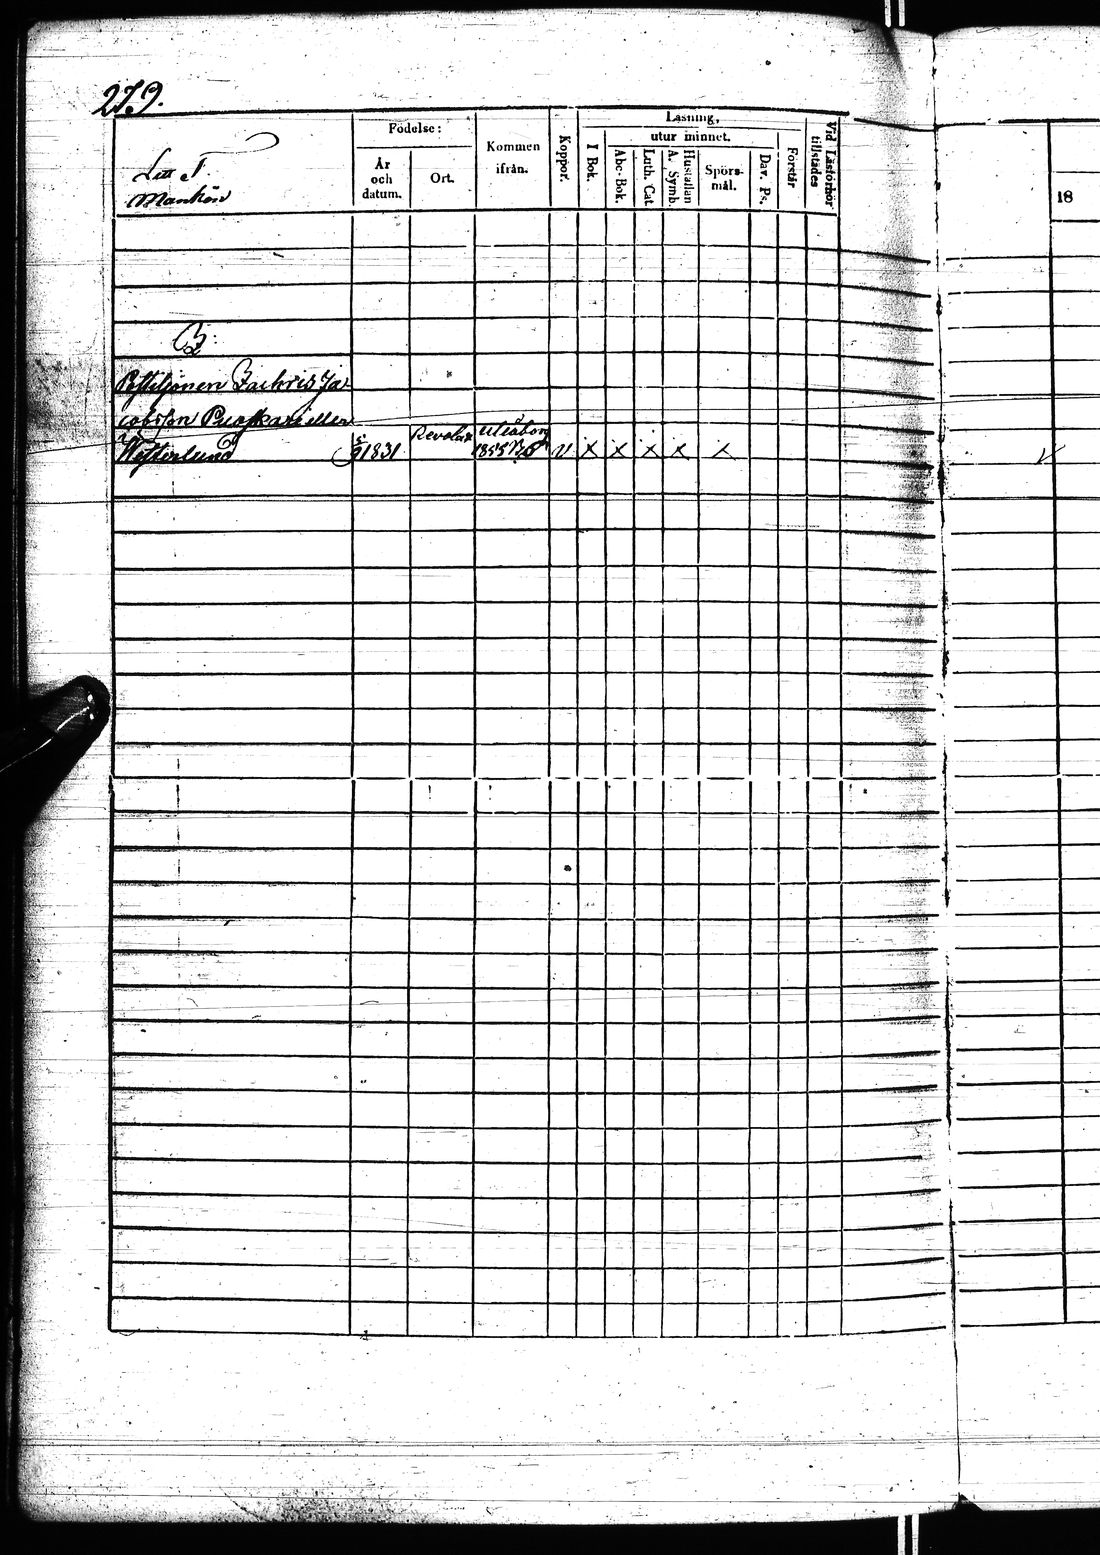 279.
Litt T.
Mankön
Födelse:
År och datum.
Ort.
Kommen ifrån.
Koppor.
Läsning,
I Bok.
utur minnet.
Abc-Bok.
Luth. Cat.
A. Symb. Hustaflan
Spörs-mål.
Dav. Ps.
Förstår
Vid Läsförhör tillstädes
18
Postiljonen Zachris Ja
cobsson Puoskari eller
Westerlund 5/9 1831 Revolax Uleåborg 1855 V X X X X X